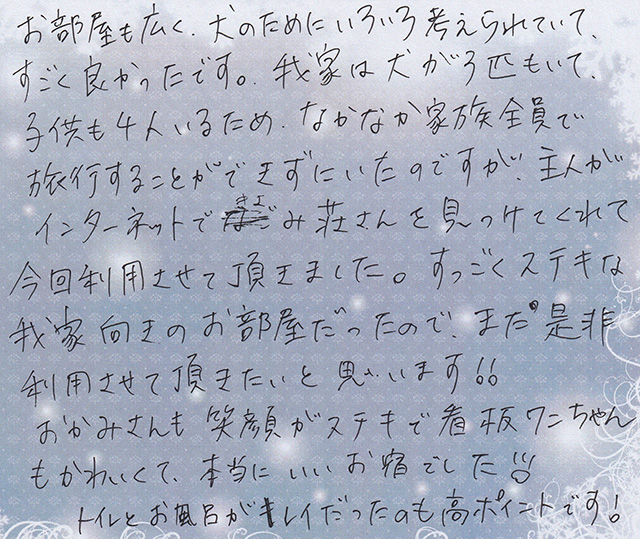 お部屋も広く、犬のためにいろいろ考えられていて、
すごく良かったです。我家は犬が3匹もいて、
子供も4人いるため、なかなか家族全員で
旅行することができずにいたのですが、主人が
インターネットできよみ荘さんを見つけてくれて
今回利用させて頂きました。すっごくステキな
我家向きのお部屋だったので、また是非
利用させて頂きたいと思います!!
おかみさんも笑顔がステキで看板ワンちゃん
もかわいくて、本当にいいお宿でした!!
トイレとお風呂がキレイだったのも高ポイントです!